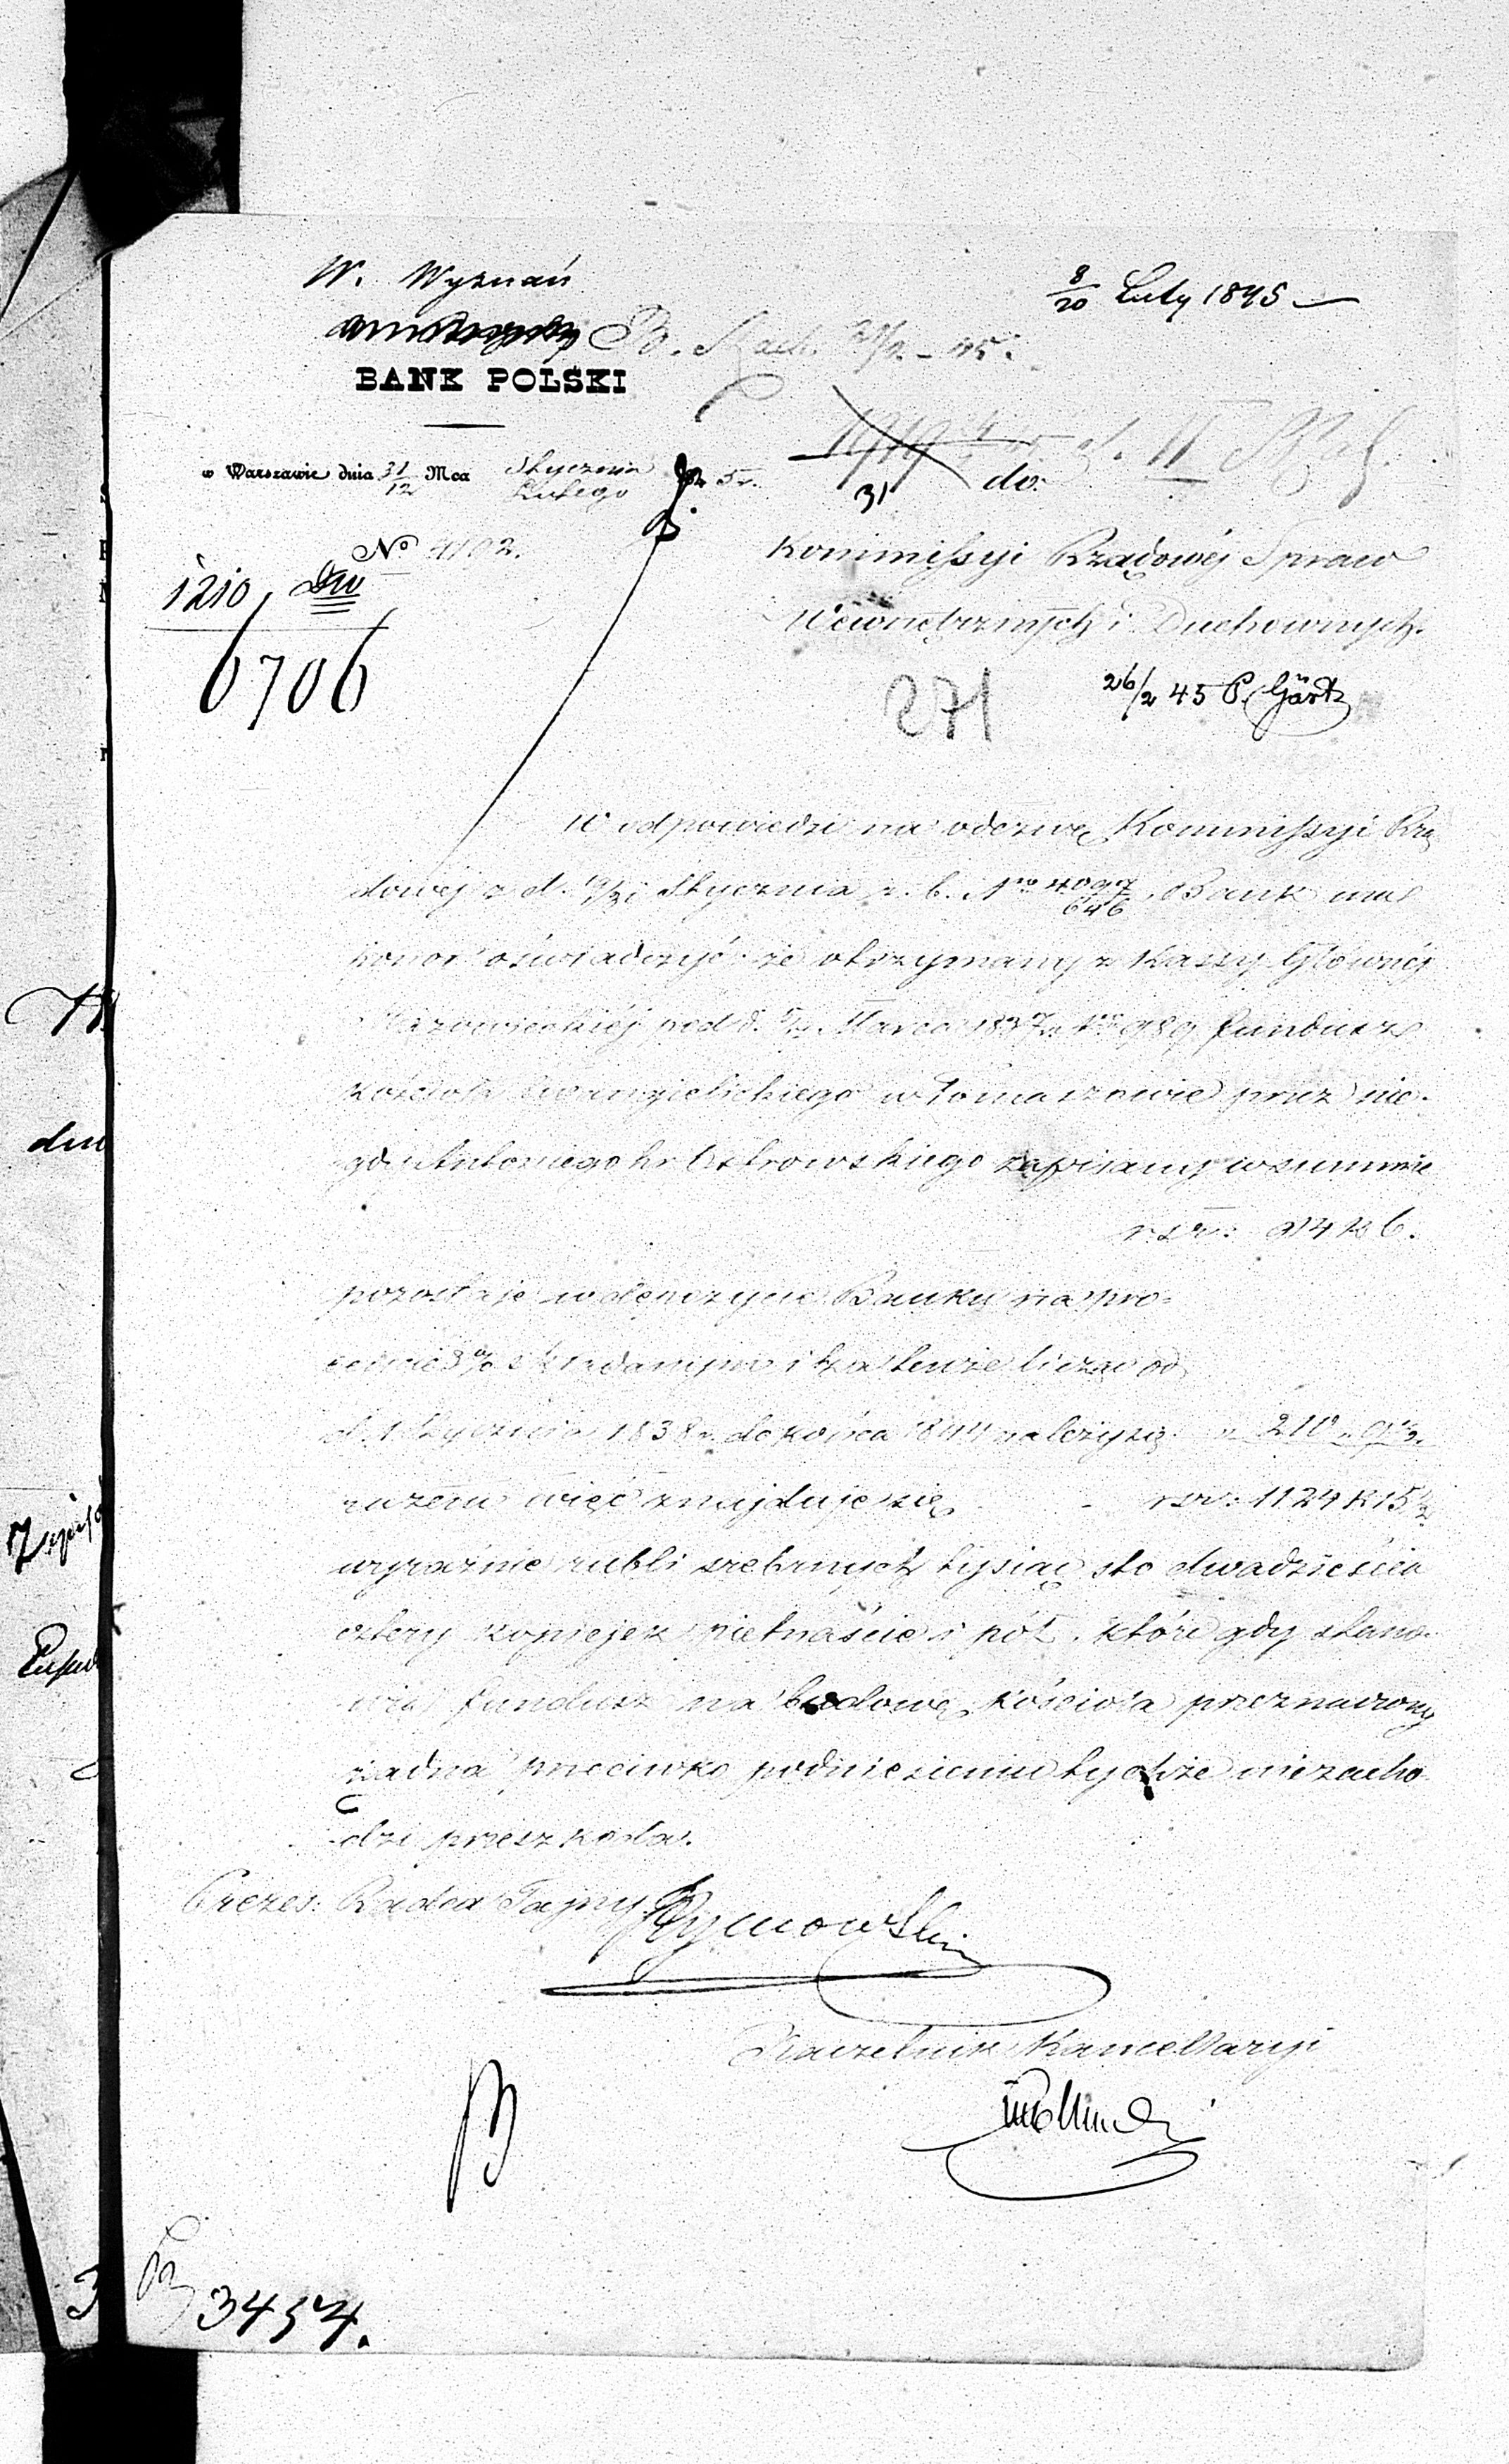 W. Wyznań
8/20 Luty 1845
BANK POLSKI
w Warszawie dnia 31/12 Mca Stycznia/Lutego
do
31
No 4102.
Kommissyi Rządowéj Spraw
1210
Wewnętrznych i Duchownych.
6706
271
26/2 45 P. Gärtz
W odpowiedzi na odezwę Kommissyi Rzą
dowéj z d. 19/31 Stycznia r. b. Nro 4097/646 Bank ma
honor oświadczyć że otrzymany z Kassy Głównéj
Mazowieckiéj pod d. Marca 1837 r. Nr 989 fundusz
Kościoła Ewangielickiego w Tomaszowie przez nie-
gdy Antoniego hr. Ostrowskiego zapisany w summie
rsr: 914 k 6.
pozostaje w depozycie Banku na pro-
cencie 3% składanym i że na tenże licząc od
d. 1 Stycznia 1838 r. do końca 1844 należy się " 210 " 9 1/2.
razem więc znajduje się - rsr: 1124 k 15 1/2
wyraźnie rubli srebrnych tysiąc sto dwadzieścia
cztery kopiejek piętnaście i pół. które gdy stano-
wią fundusz na budowę Kościoła przeznaczony
żadna przeciwko podniesieniu tychże nie zacho-
dzi przeszkoda.
Prezes: Radca Tajny
Tymowski
Naczelnik Kancellaryi
3454.